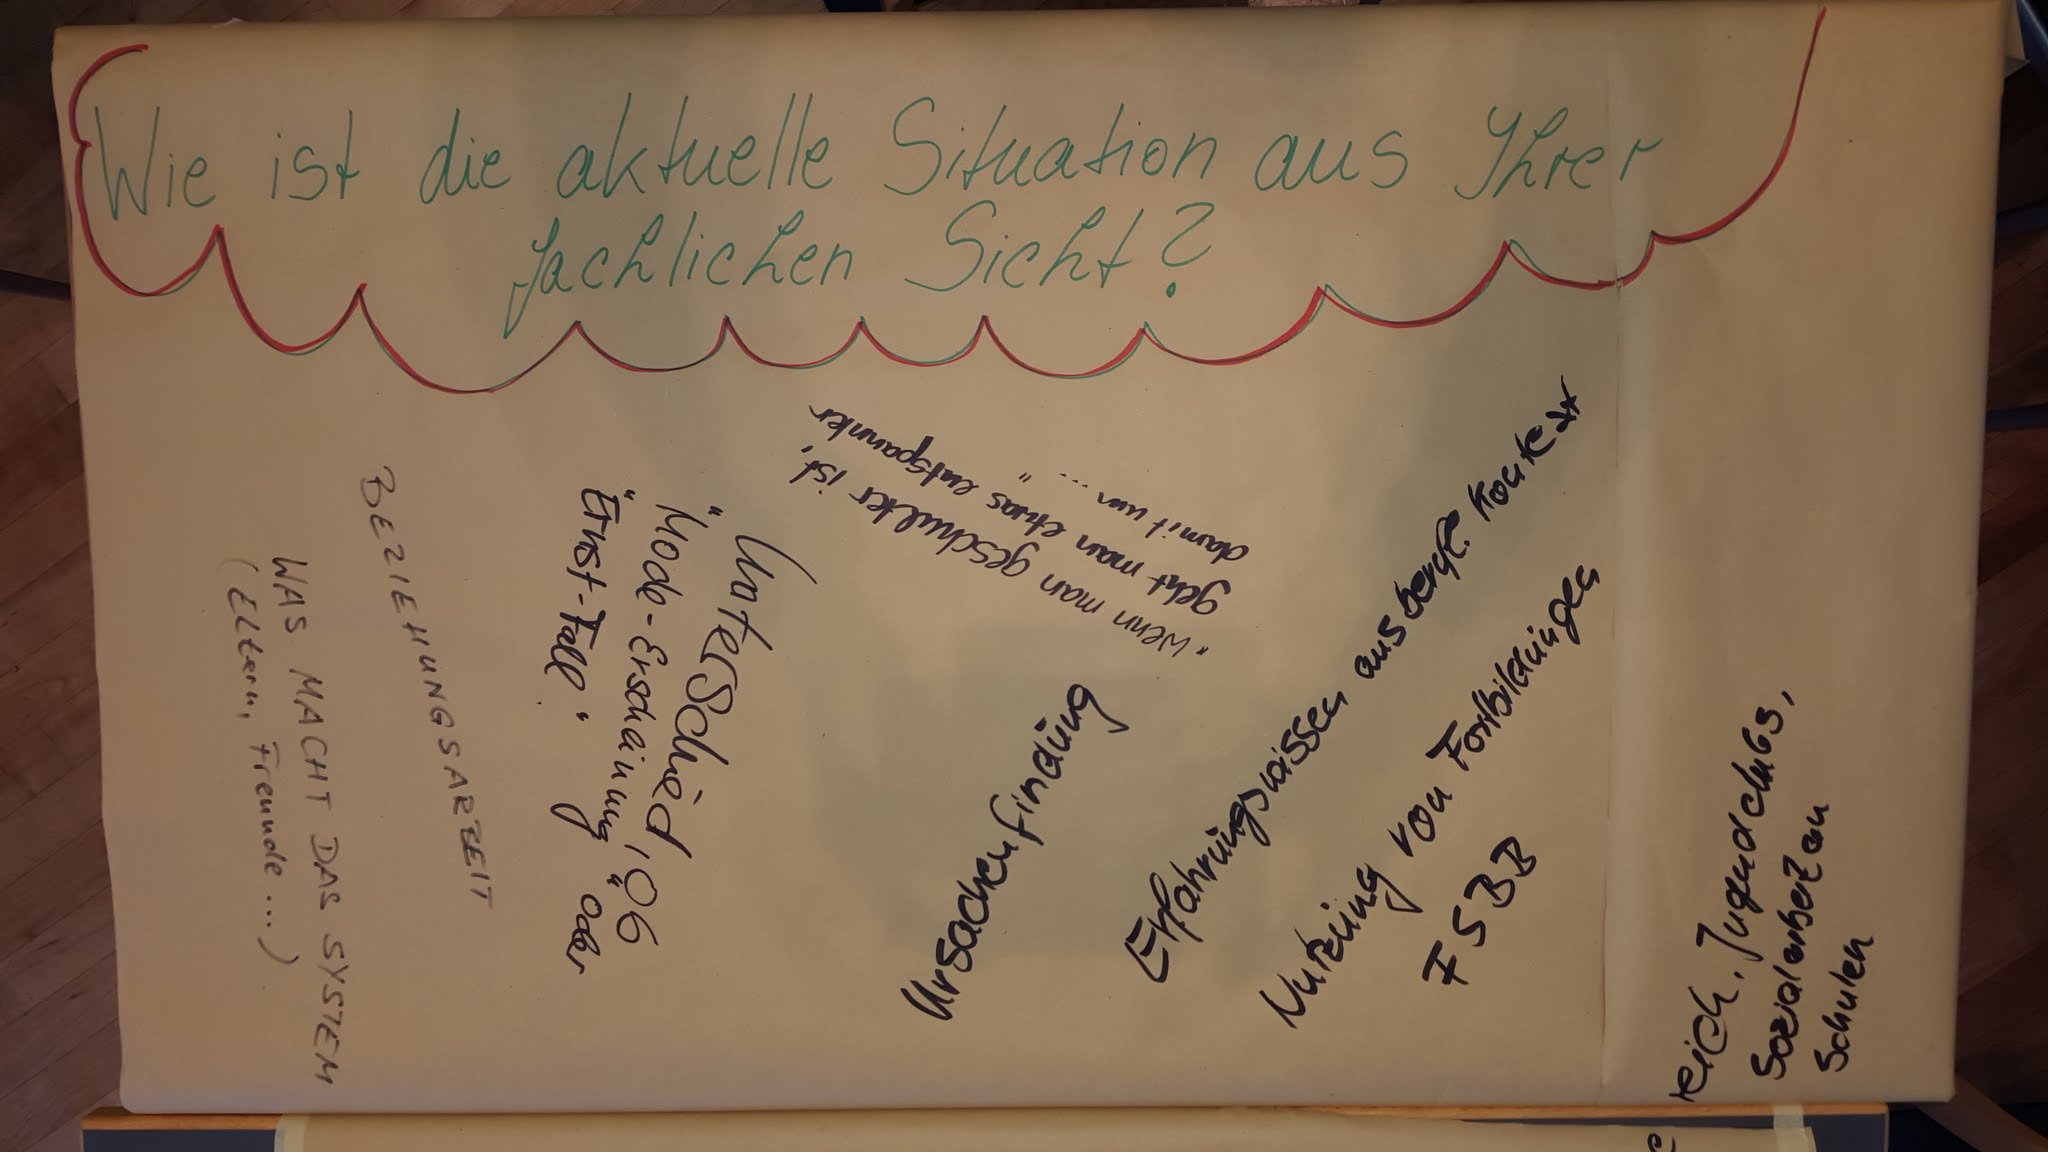 Wie ist die aktuelle Situation aus Ihrer
fachlichen Sicht?
BEZIEHUNGSARBEIT
WAS MACHT DAS SYSTEM
(ELtern, Freunde ....)
Unterschied, ob
"Mode-Erscheinung" oder
"Ernst-Fall".
"wenn man geschulter ist,
geht man etwas entspannter
damit um ... "
Ursachenfindung
Erfahrungswissen aus berufl. Kontext
Nutzung von Fortbildungen
FSBB
reich. Jugendclubs,
Sozialarbeit an
Schulen